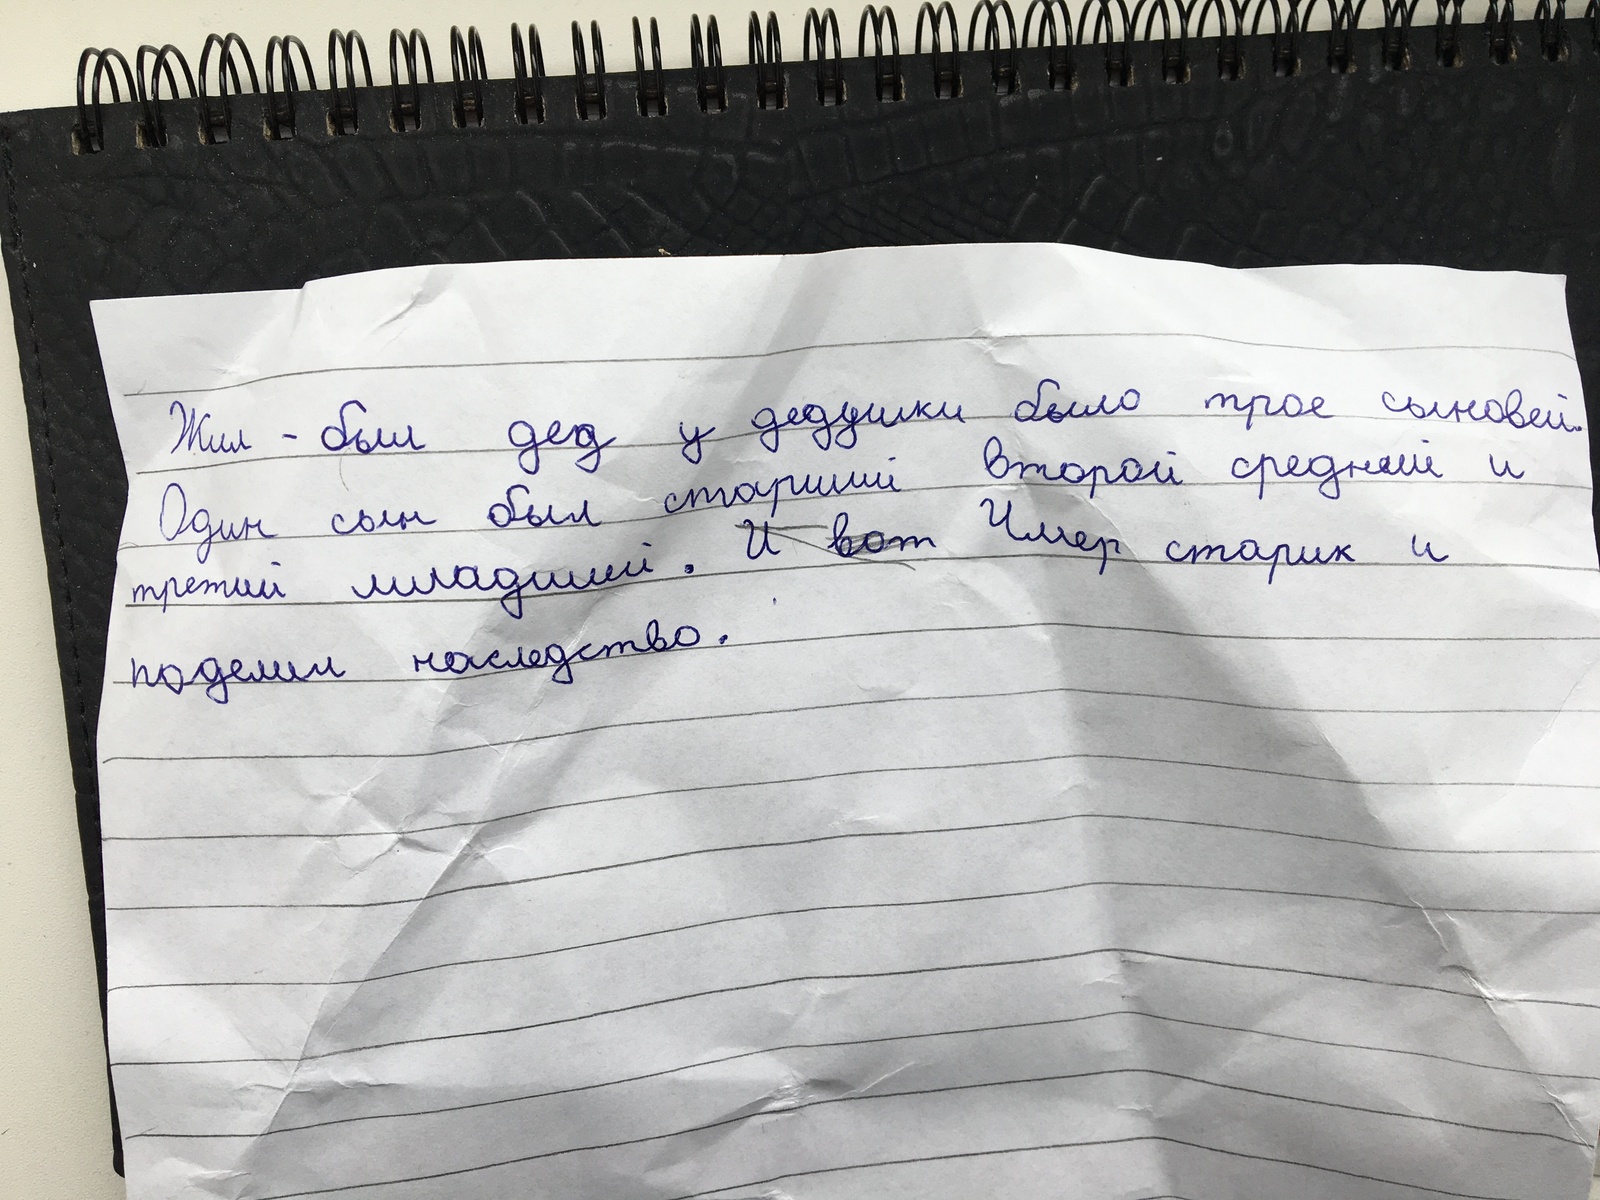 Жил - был дед у дедушки было трое сыновей.
Один сын был старший второй средний и
третий младший. И вот Умер старик и
поделил наследство.